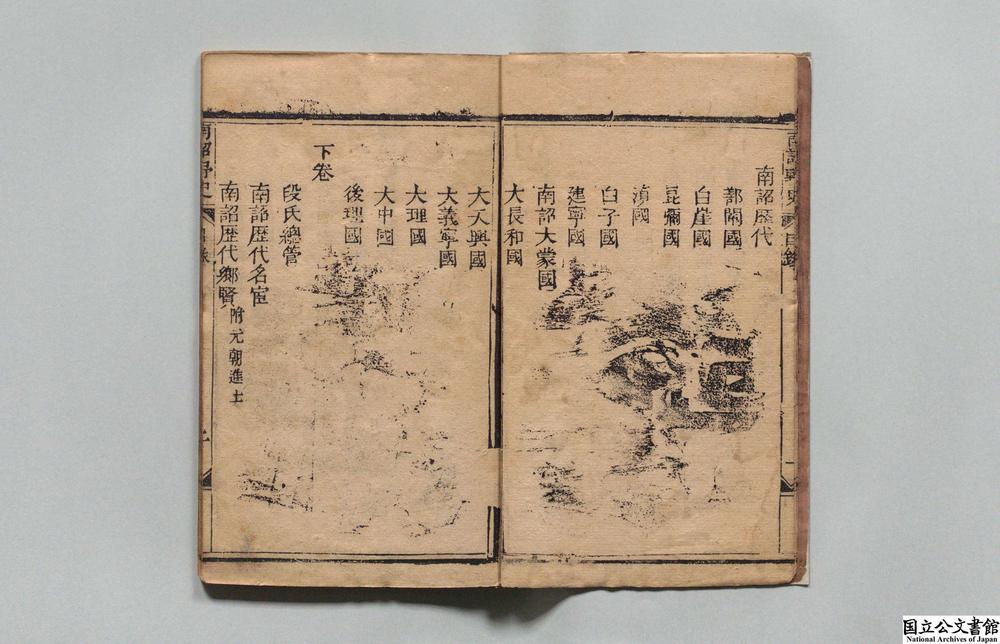 南詔歷代
鄯闡國
白崖國
昆彌國
滇國
白子國
建寧國
南詔大蒙國
大長和國
大天興國
大義寧國
大理國
大中國
後理國
下卷
段氏總管
南詔歷代名宦
南詔歷代鄉賢 附元朝進士
南詔野史
目錄
国立公文書館
National Archives of Japan